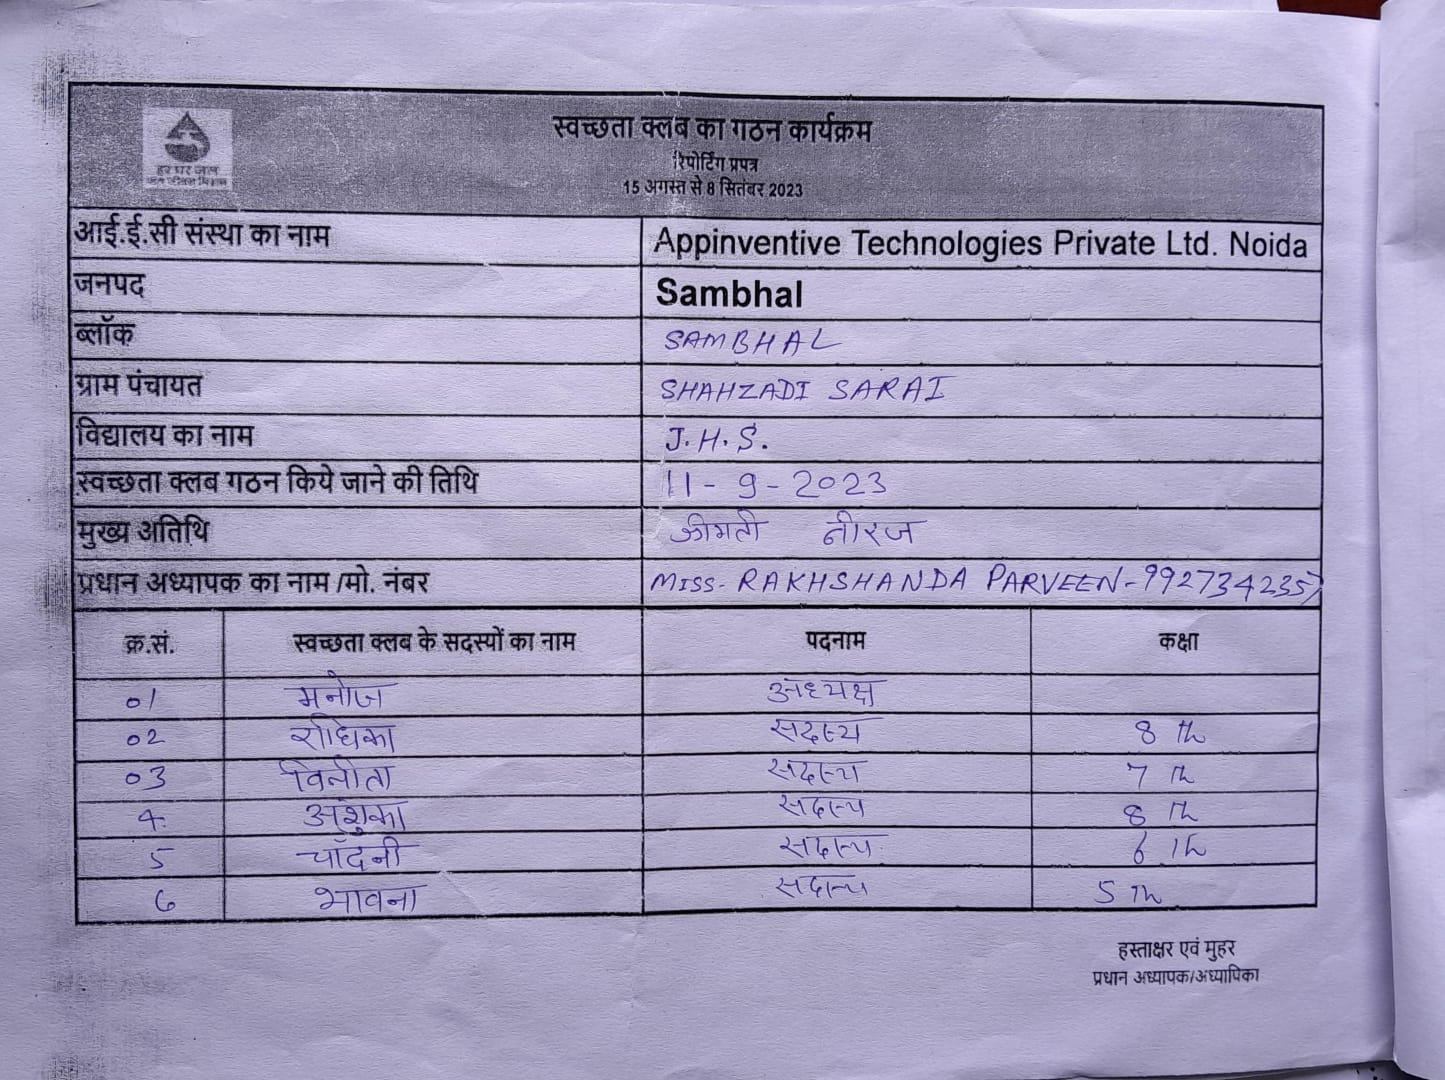 हर घर जल
जल जीवन मिशन
स्वच्छता क्लब का गठन कार्यक्रम
रिपोर्टिंग प्रपत्र
15 अगस्त से 8 सितंबर 2023
आई.ई.सी संस्था का नाम Appinventive Technologies Private Ltd. Noida
जनपद Sambhal
ब्लॉक SAMBHAL
ग्राम पंचायत SHAHZADI SARAI
विद्यालय का नाम J.H.S.
स्वच्छता क्लब गठन किये जाने की तिथि 11-9-2023
मुख्य अतिथि श्रीमती नीरज
प्रधान अध्यापक का नाम /मो. नंबर MISS- RAKHSHANDA PARVEEN-9927342357
क्र.सं. स्वच्छता क्लब के सदस्यों का नाम पदनाम कक्षा
01 मनोज अध्यक्ष
02 राधिका सदस्य 8 th
03 विनीता सदस्य 7 th
4. अंशुका सदस्य 8 th
5 चाँदनी सदस्य 6 th
6 भावना सदस्य 5 th
हस्ताक्षर एवं मुहर
प्रधान अध्यापक/अध्यापिका